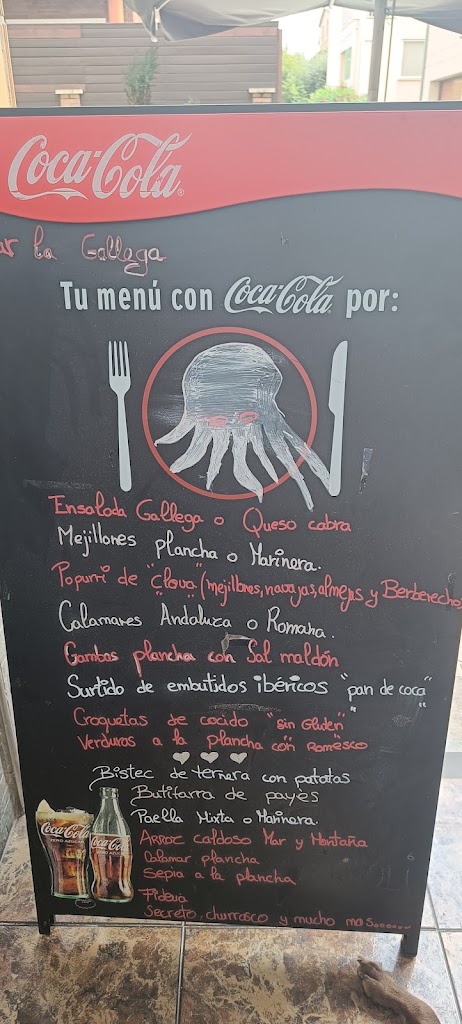 Coca-Cola
ar la Gallega
Tu menú con Coca-Cola por:
Ensalada Gallega o Queso cabra
Mejillones plancha o Marinera.
Popurri de "Clova" (mejillones, navajas, almejas y Berberechos
Calamares Andaluza o Romana.
Gambas plancha con Sal maldón
Surtido de embutidos ibéricos "pan de coca"
Croquetas de cocido "sin Gluten"
Verduras a la plancha con Romesco
Bistec de ternera con patatas
Butifarra de payés
Paella Mixta o Marinera.
Arroz caldoso Mar y Montaña
Calamar plancha
Sepia a la plancha
Fideua
Secreto, churrasco y mucho mas.......
Coca-Cola
ZERO AZÚCAR
Coca-Cola
ZERO AZÚCAR